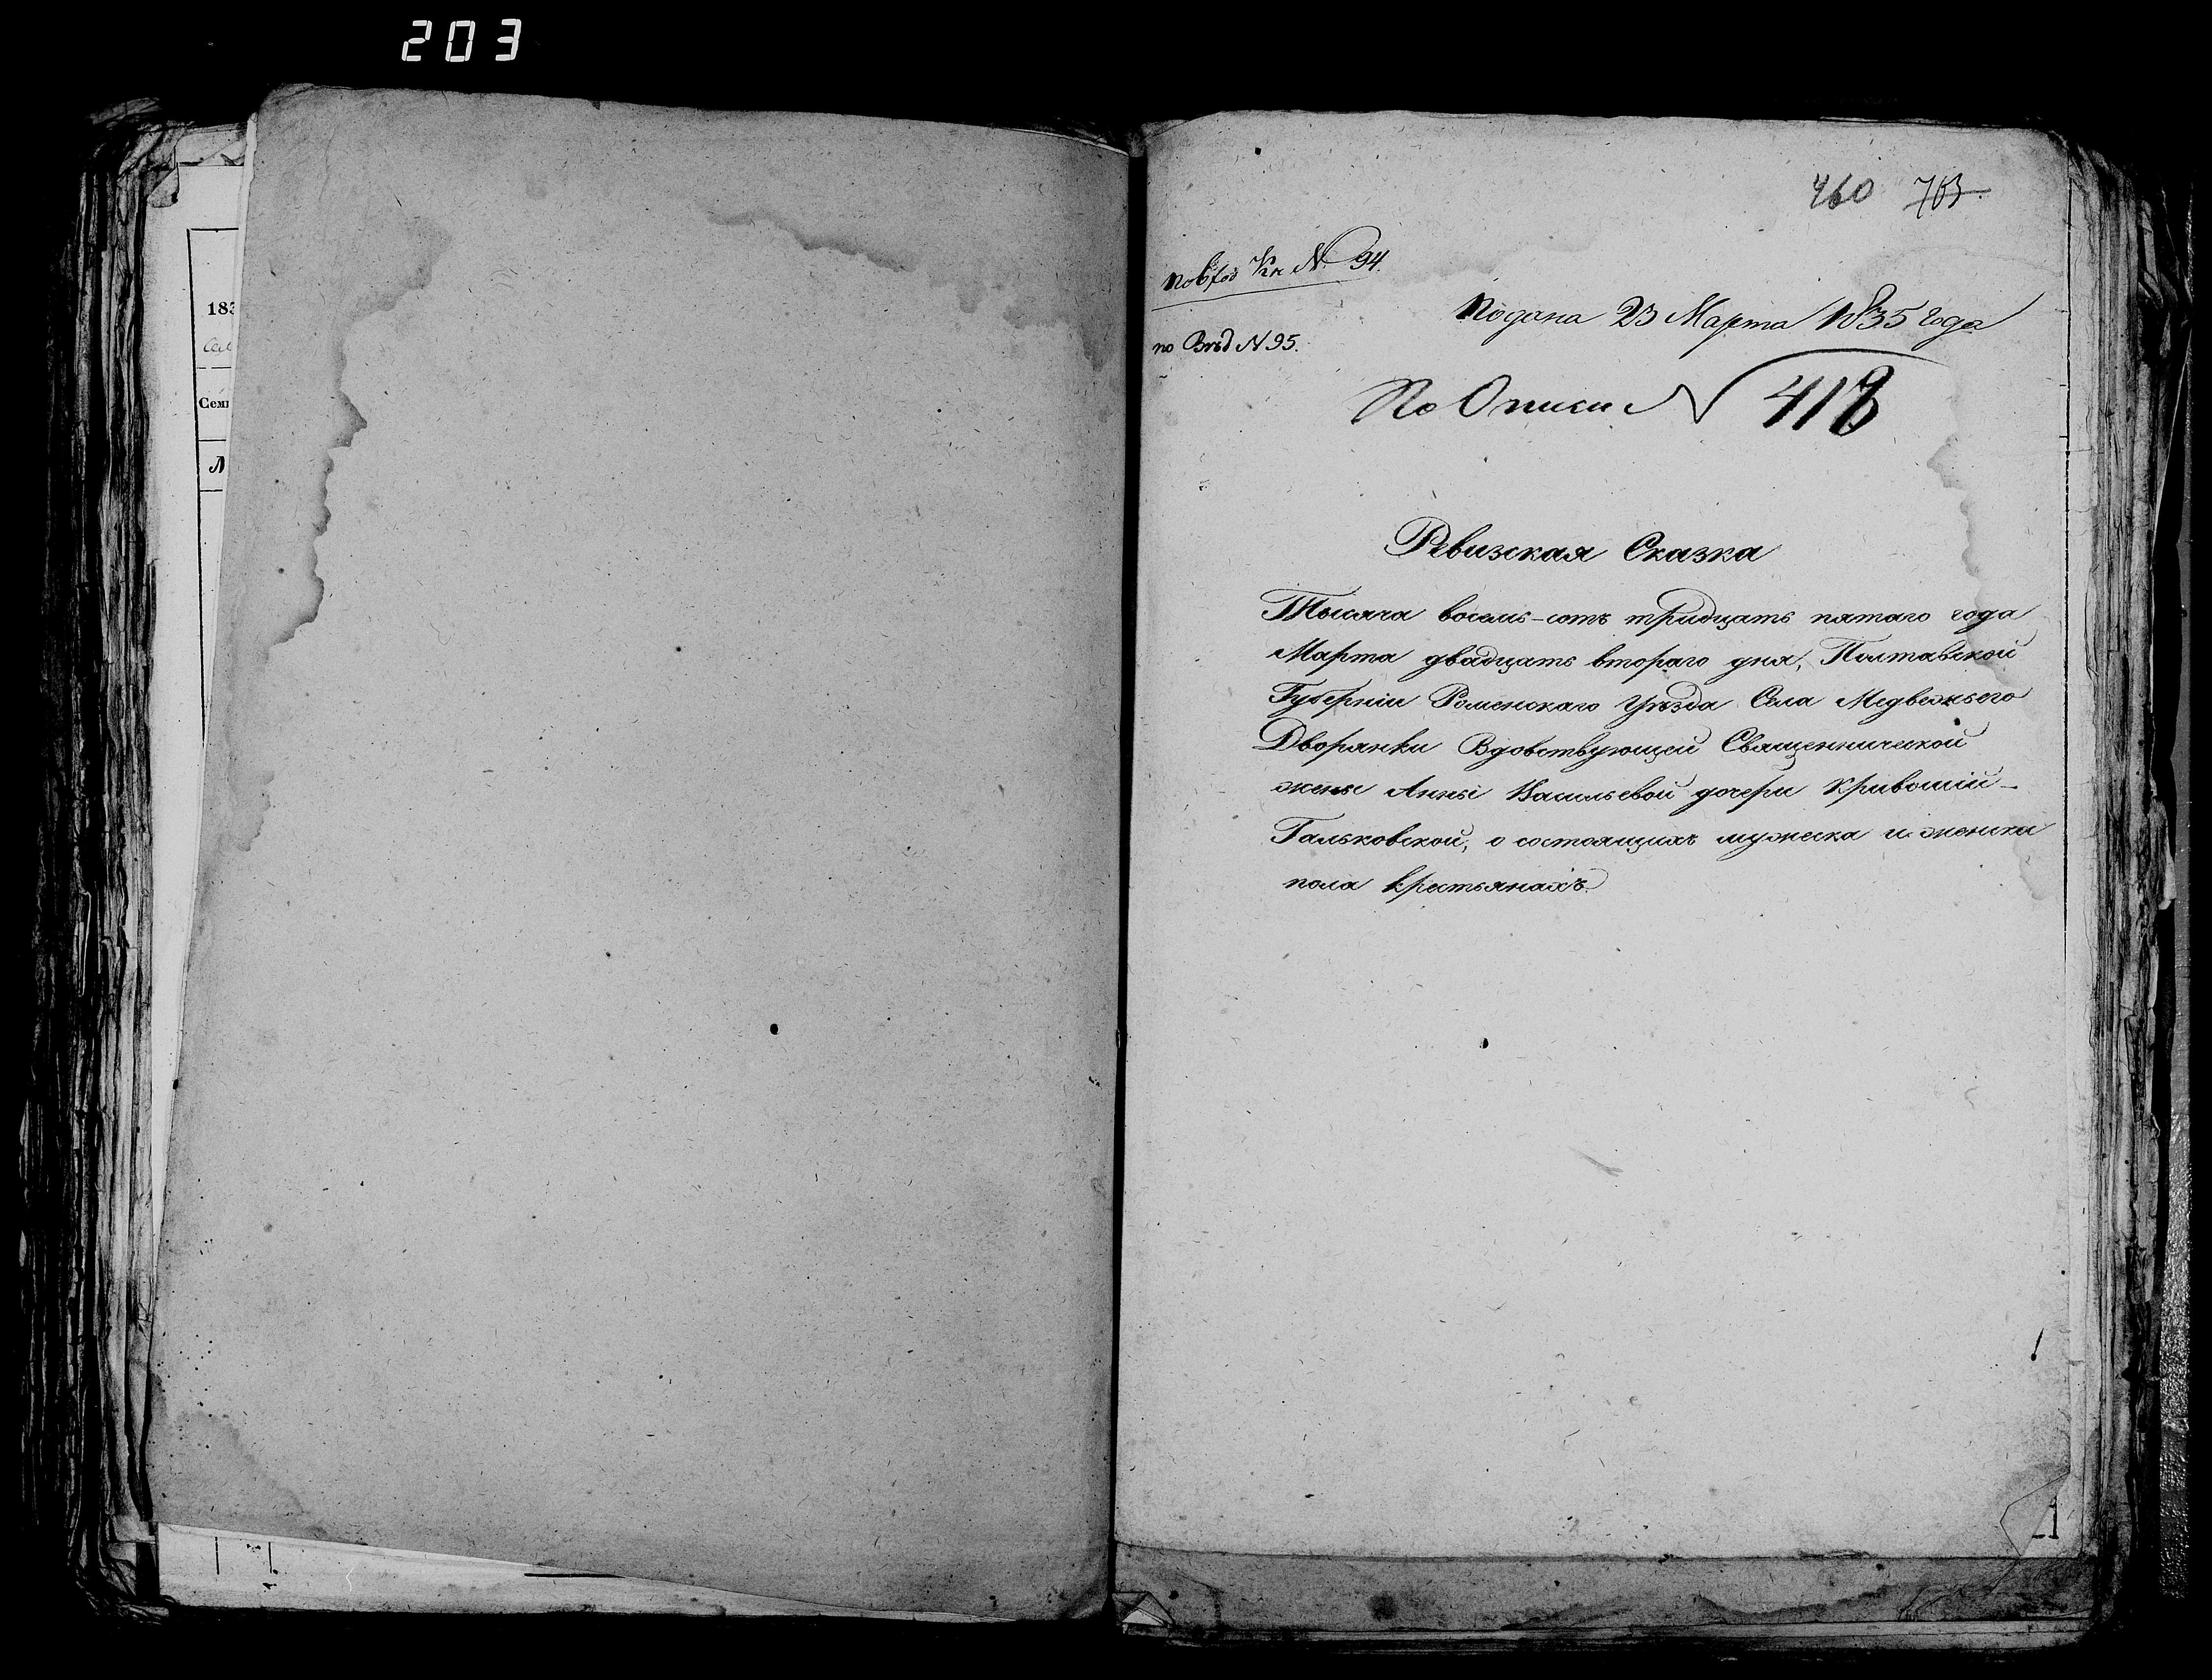 203
183
Сем
№
460 703
по вход Кн №. 94.
по Вѣд № 95.
Подана 23 Марта 1835 года
По Описи № 418
Ревизская Сказка
Тысяча восемь-сотъ тридцать пятаго года
Марта двадцать втораго дня, Полтавской
Губерніи Роменскаго Уѣзда Села Медвежьего
Дворянки Вдовствующей Священнической
жены Анны Васильевой дочери Кривошіи-
Гальковской, о состоящихъ мужеска и женска
пола крестьянахъ.